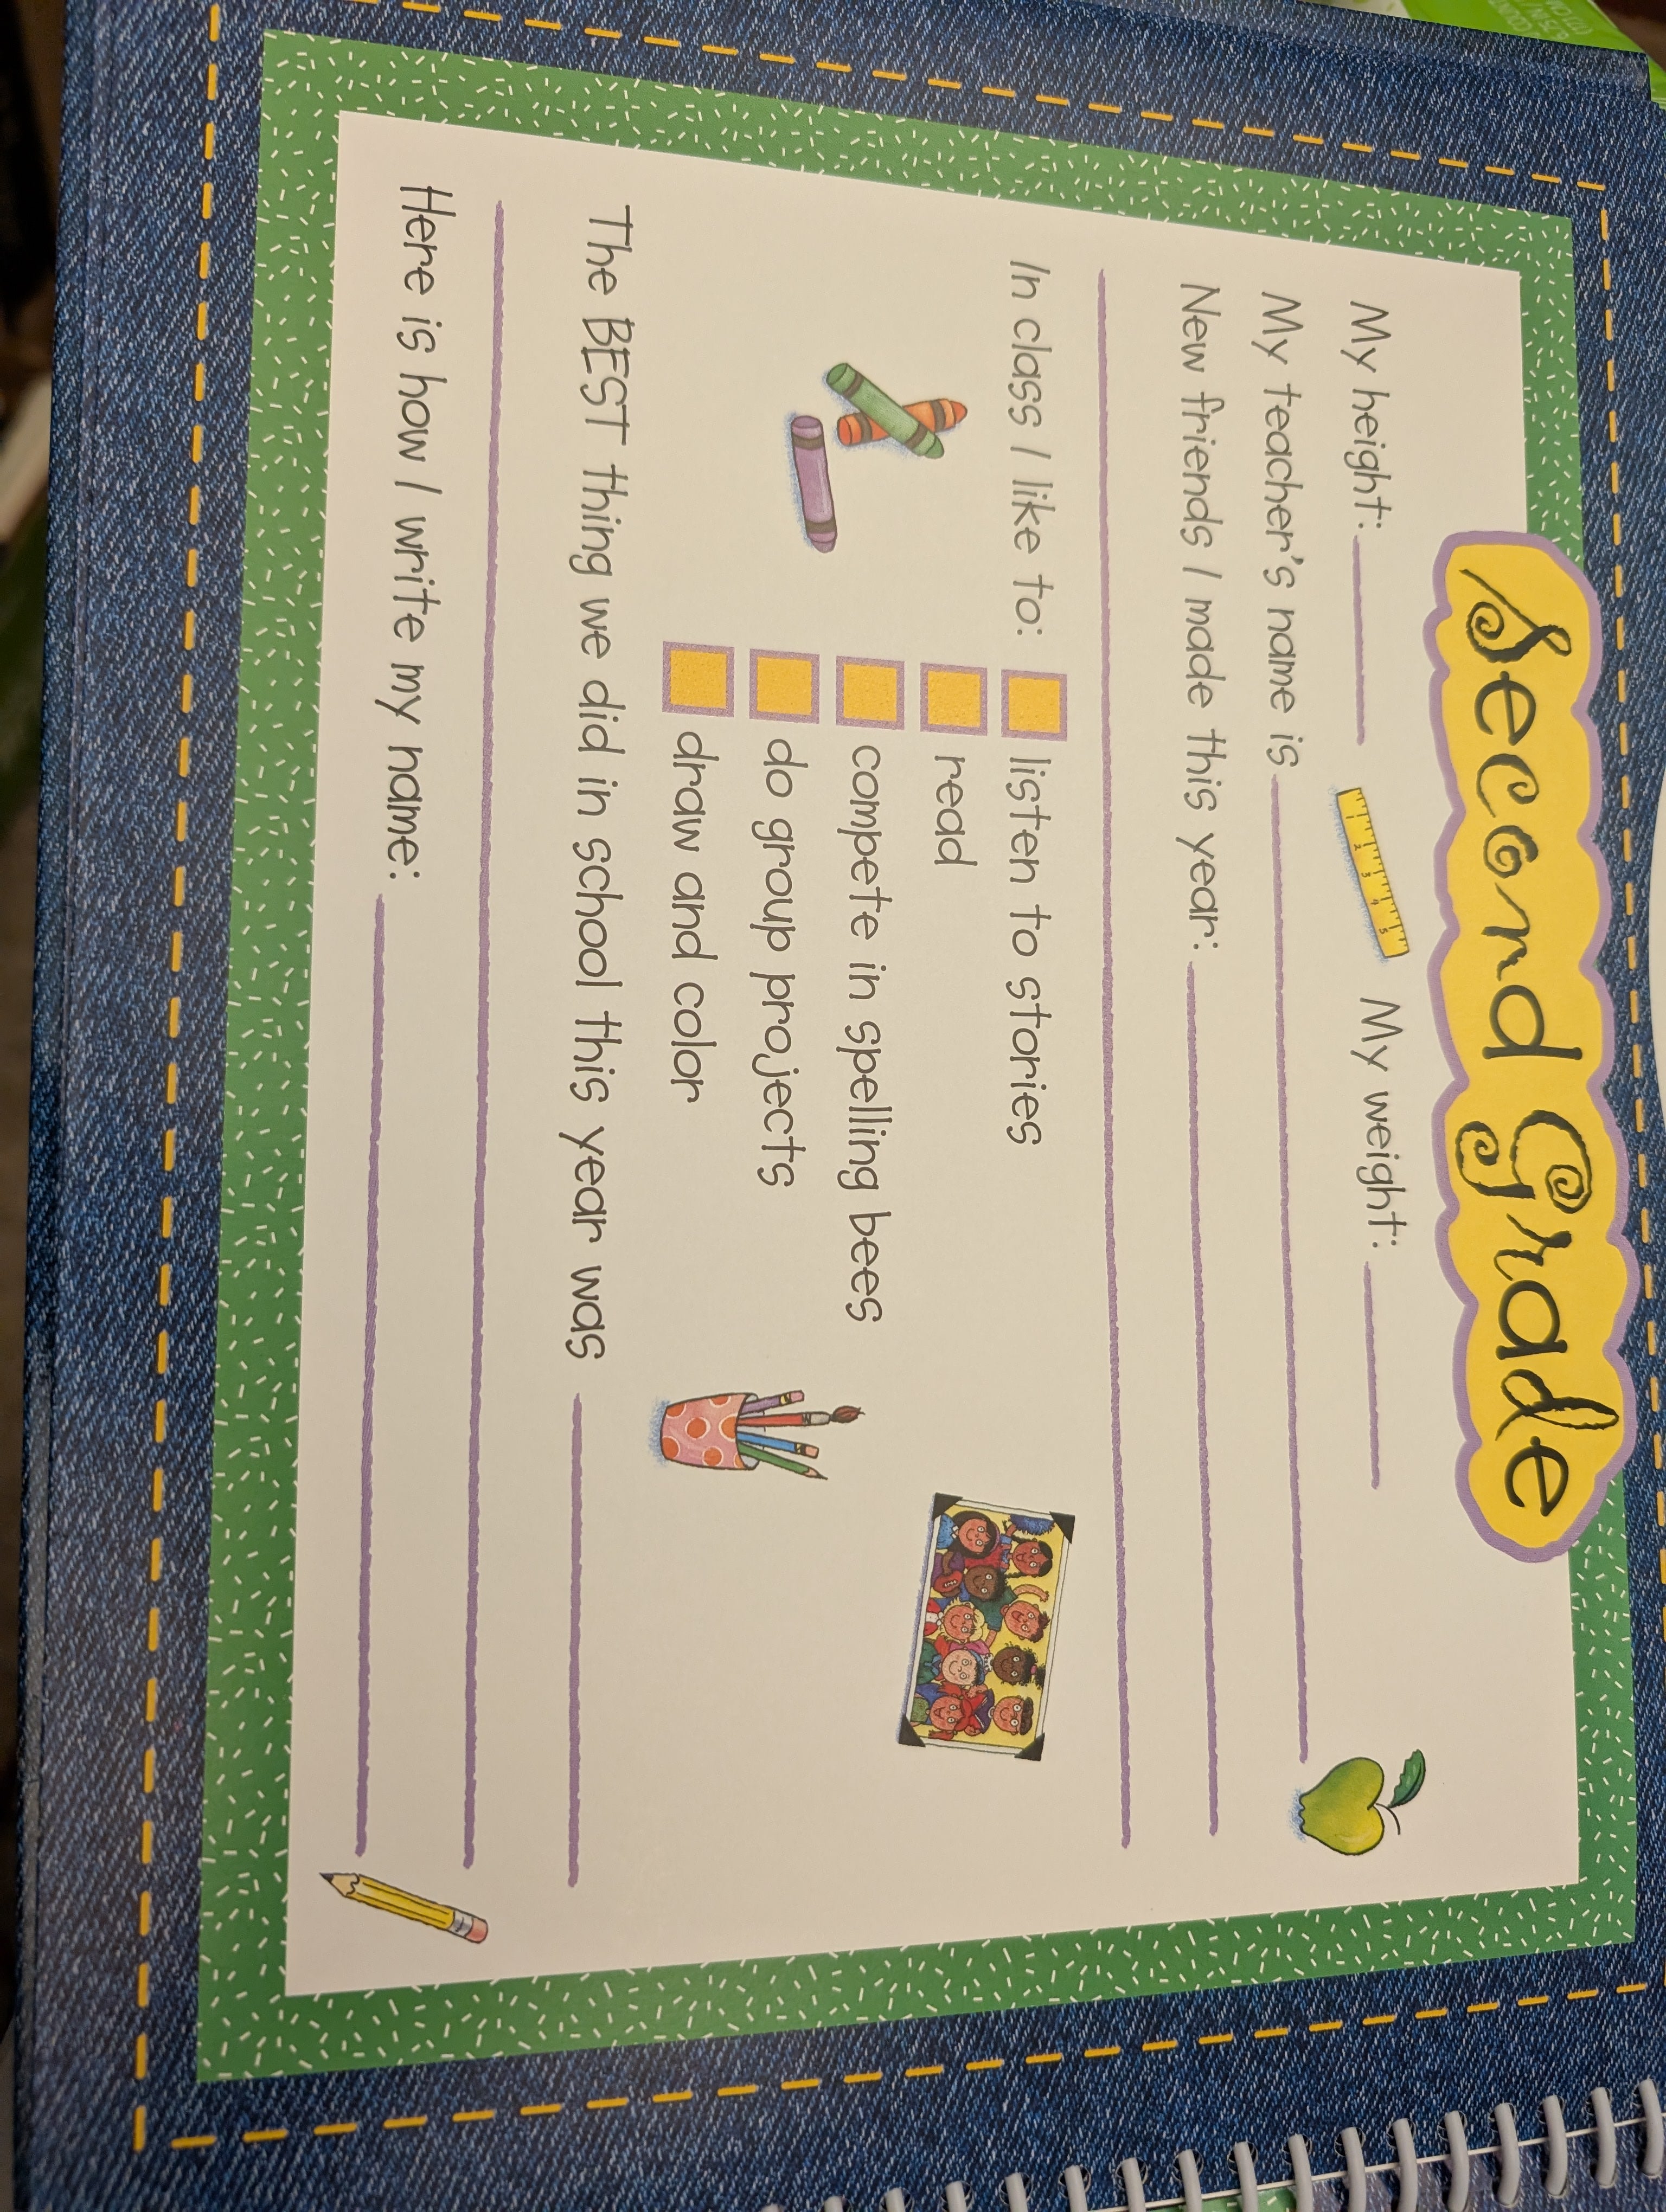 Second Grade
My height: My weight:
My teacher's name is
New friends I made this year:
In class I like to: listen to stories
read
compete in spelling bees
do group projects
draw and color
The BEST thing we did in school this year was
Here is how I write my name: